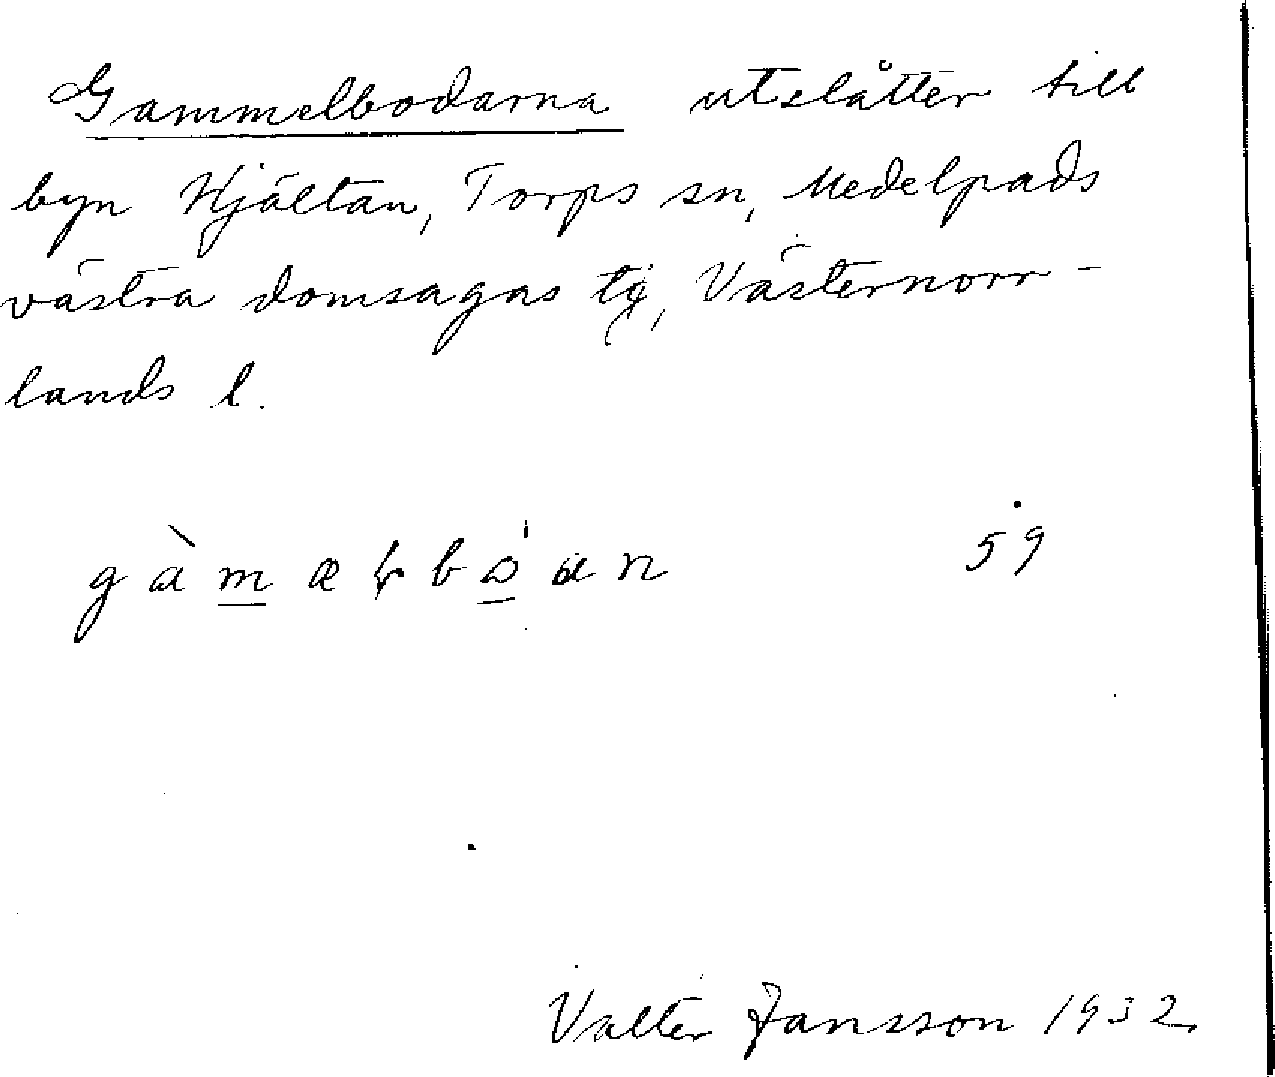 Gammelbodarna utslåtter till
byn Hjältan, Torps sn, Medelpads
västra domsagas tg, Västernorr-
lands l.
59
Valter Jansson 1932.